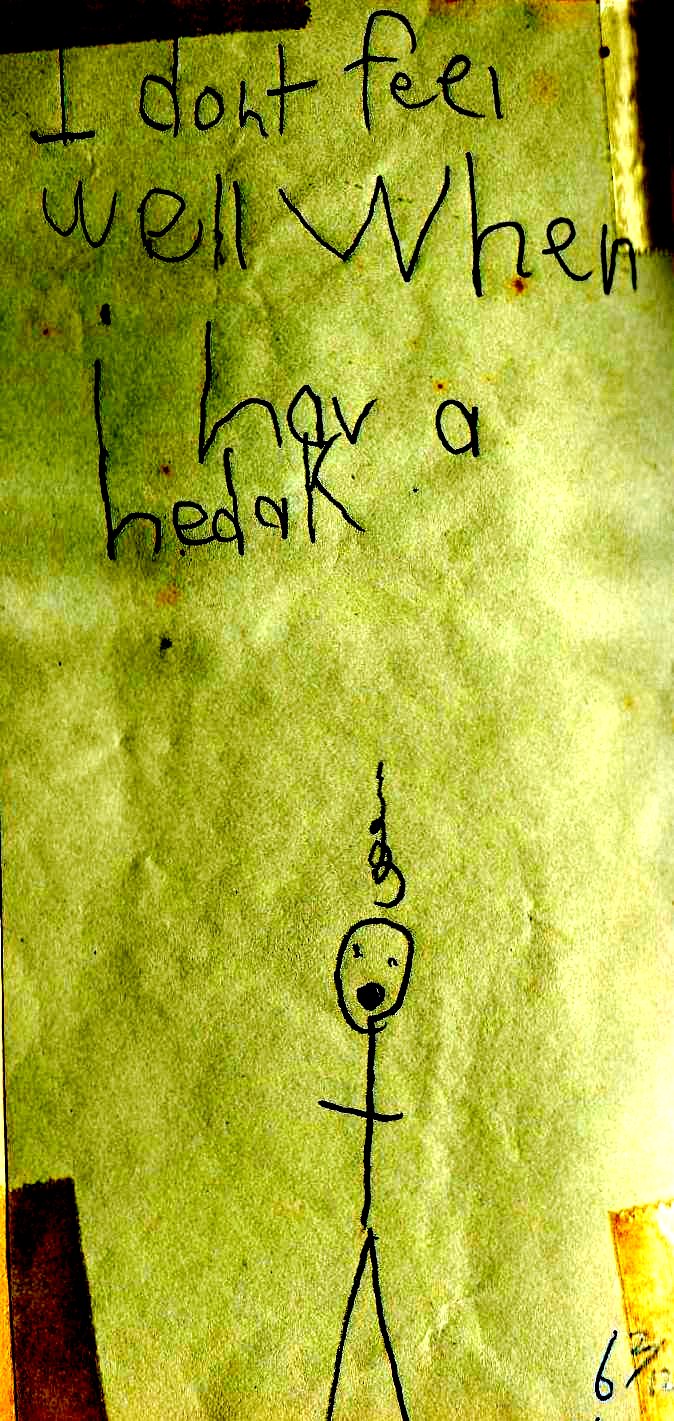 I dont feel
well When
i hav a
hedak
6 3/12